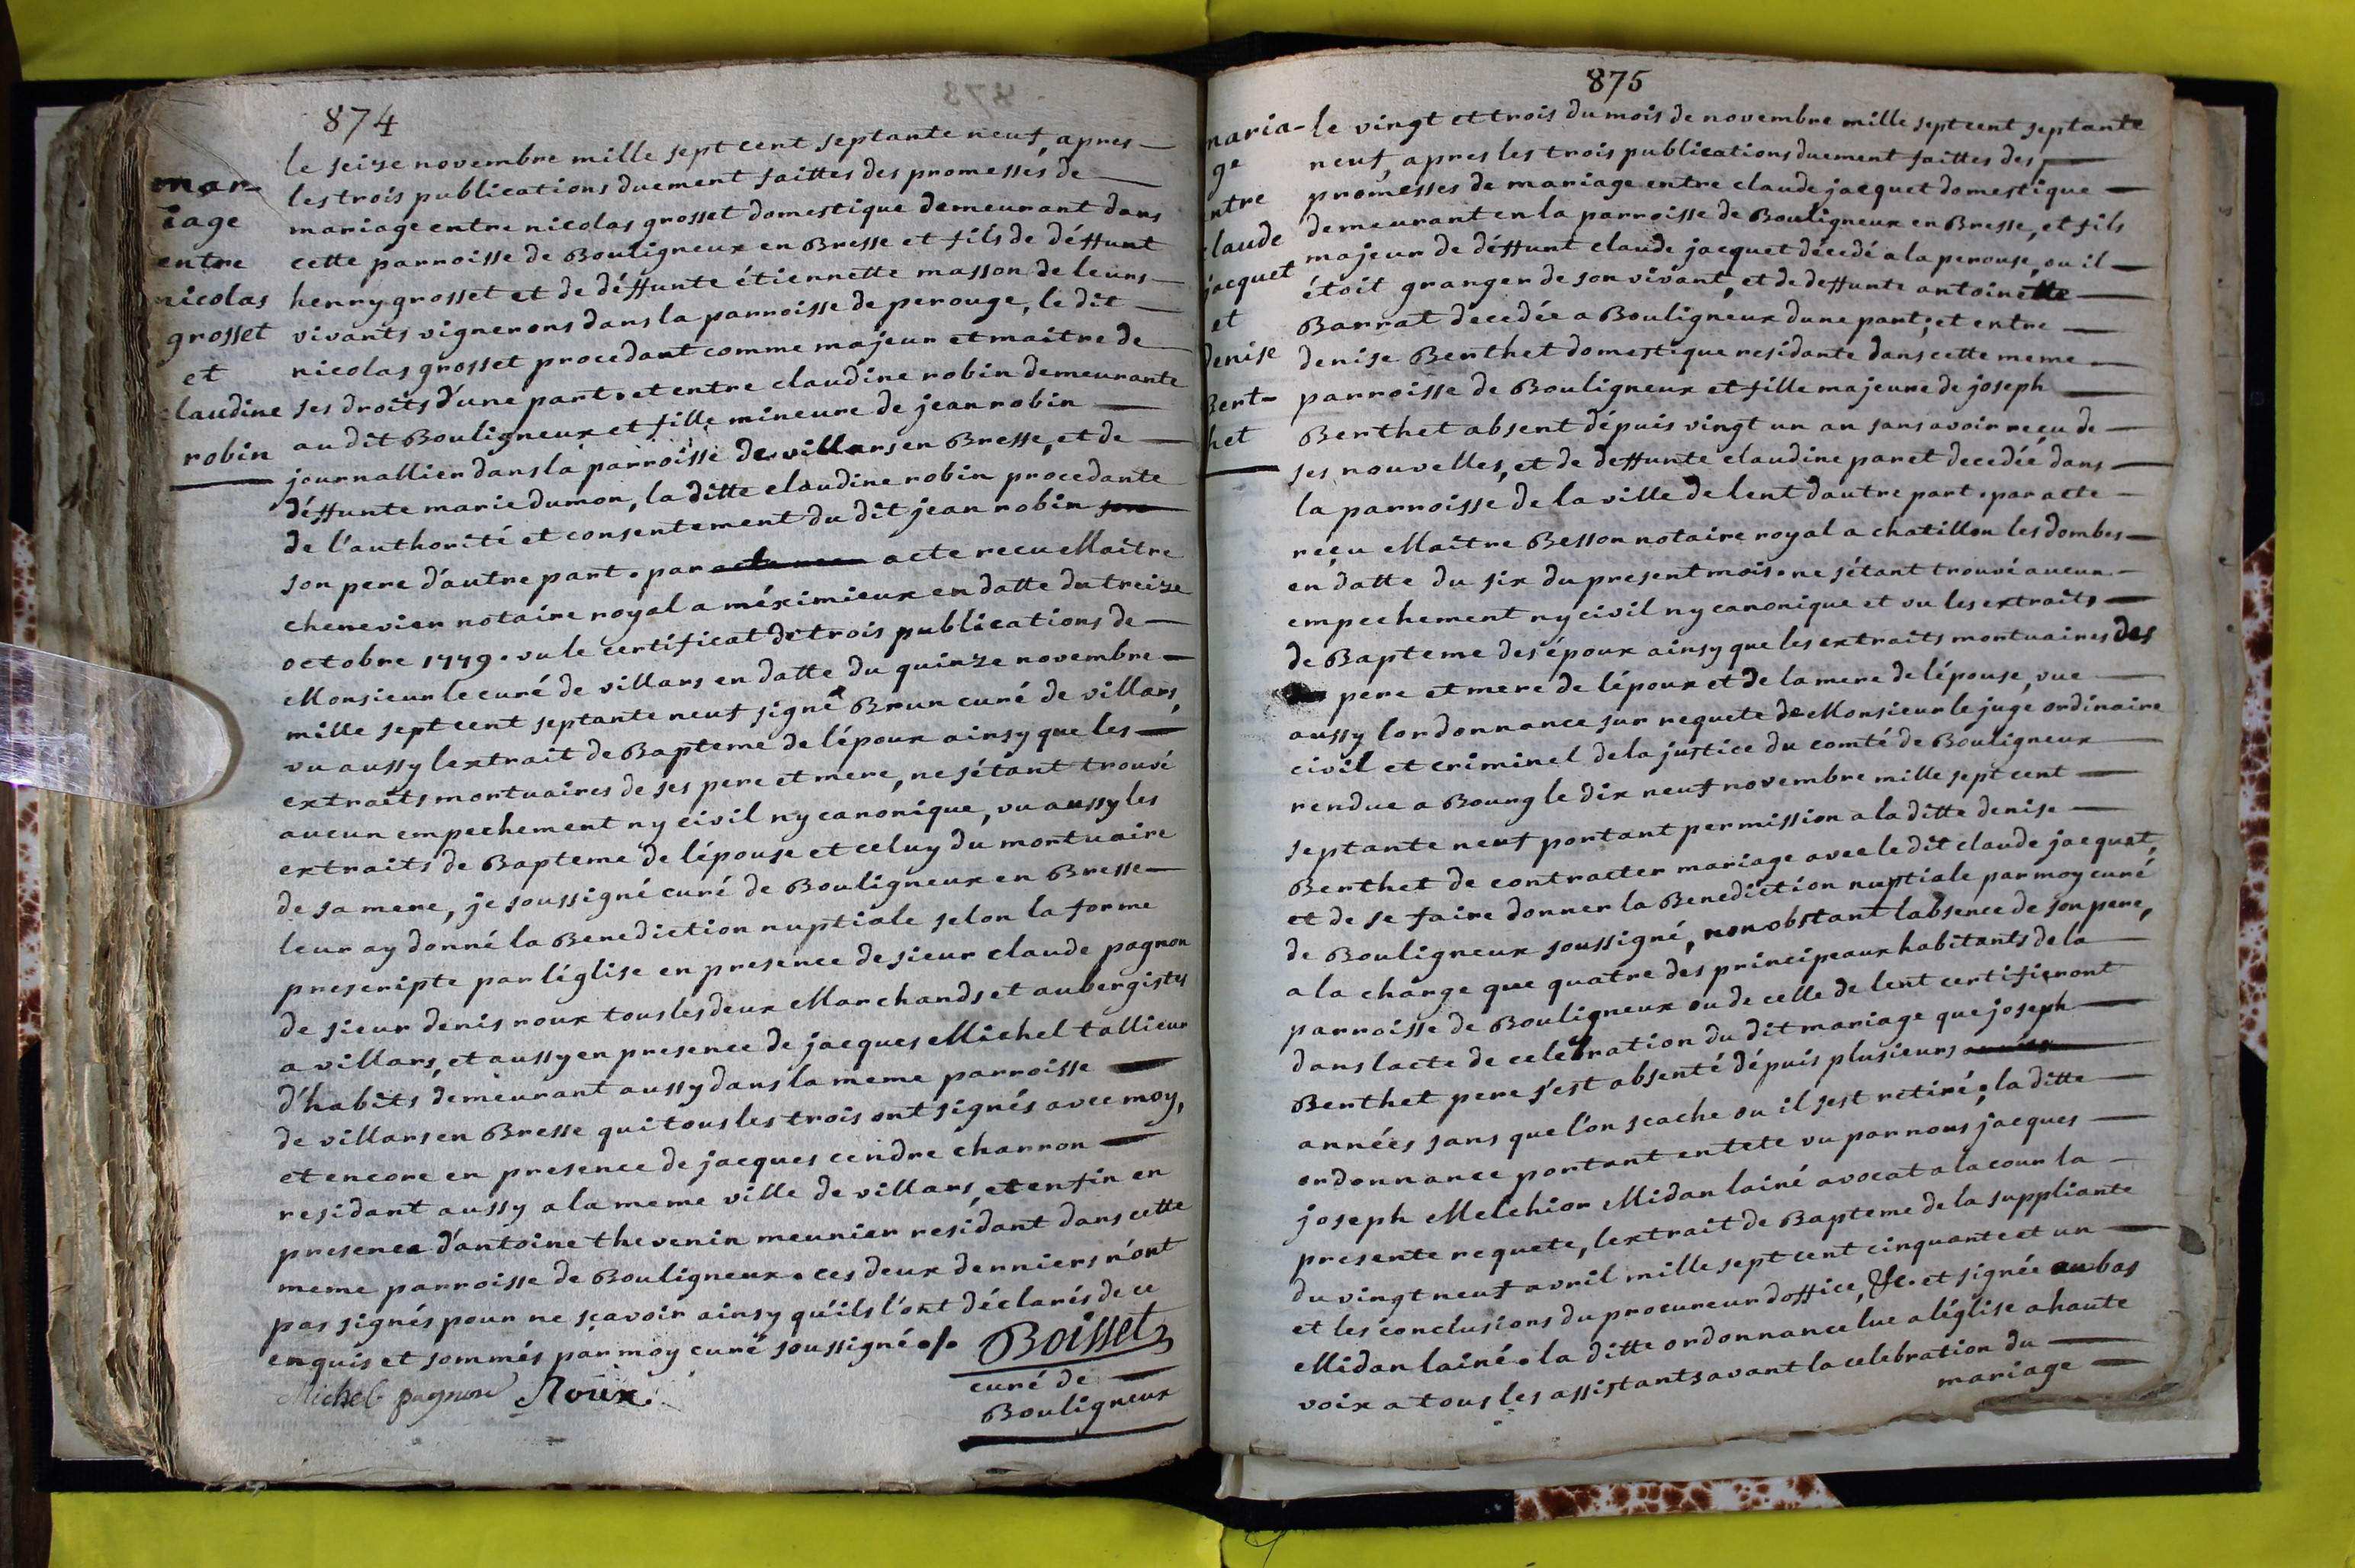 874
mar-
iage
entre
nicolas
grosset
et
claudine
robin
le seize novembre mille sept cent septante neuf, apres
les trois publications duement faittes des promesses de
mariage entre nicolas grosset domestique demeurant dans
cette parroisse de Bouligneux en Bresse et fils de déffunt
henry grosset et de déffunte étiennette masson de leurs
vivants vignerons dans la parroisse de perouge, le dit
nicolas grosset procedant comme majeur et maitre de
ses droits d'une part. et entre claudine robin demeurante
au dit Bouligneux et fille mineure de jean robin
journallier dans la parroisse de villars en Bresse, et de
déffunte marie dumon, la ditte claudine robin procedante
de l'authorité et consentement du dit jean robin
son pere d'autre part. par acte recu Maitre
chenevier notaire royal a méximieux en datte du treize
octobre 1779. vu le certificat de trois publications de
Monsieur le curé de villars en datte du quinze novembre
mille sept cent septante neuf signé Brun curé de villars,
vu aussy lextrait de Bapteme de lépoux ainsy que les
extraits mortuaires de ses pere et mere, ne sétant trouvé
aucun empechement ny civil ny canonique, vu aussy les
extraits de Bapteme de lépouse et celuy du mortuaire
de sa mere, je soussigné curé de Bouligneux en Bresse
leur ay donné la Benediction nuptiale selon la forme
prescripte par léglise en presence de sieur claude pagnon
de sieur denis roux tous les deux Marchands et aubergistes
a villars, et aussy en presence de jacques Michel tallieur
d'habits demeurant aussy dans la meme parroisse
de villars en Bresse qui tous les trois ont signés avec moy,
et encore en presence de jacques cendre charron
residant aussy a la meme ville de villars, et enfin en
presence d'antoine thevenin meunier residant dans cette
meme parroisse de Bouligneux. ces deux derniers n'ont
pas signés pour ne sçavoir ainsy qu'ils l'ont déclarés de ce
enquis et sommés par moy curé soussigné ./.
Boisset
curé de
Bouligneux
Michel pagnon Roux
875
maria-
ge
entre
claude
jacquet
et
denise
Bert-
het
le vingt et trois du mois de novembre mille sept cent septante
neuf, apres les trois publications duement faittes des
promesses de mariage entre claude jacquet domestique
demeurant en la parroisse de Bouligneux en Bresse, et fils
majeur de déffunt claude jacquet décedé a la perouse, ou il
étoit granger de son vivant, et de deffunte antoinette
Barrat decedée a Bouligneux dune part; et entre
denise Berthet domestique residante dans cette meme
parroisse de Bouligneux et fille majeure de joseph
Berthet absent dépuis vingt un an sans avoir reçu de
ses nouvelles, et de deffunte claudine paret decedée dans
la parroisse de la ville de lent dautre part. par acte
reçu Maitre Besson notaire royal a chatillon les dombes
en datte du six du present mois. ne sétant trouvé aucun
empechement ny civil ny canonique et vu les extraits
de Bapteme des époux ainsy que les extraits mortuaires des
pere et mere de lépoux et de la mere de lépouse, vue
aussy lordonnance sur requete de Monsieur le juge ordinaire
civil et criminel de la justice du comté de Bouligneux
rendue a Bourg le dix neuf novembre mille sept cent
septante neuf portant permission a la ditte denise
Berthet de contracter mariage avec le dit claude jacquet,
et de se faire donner la Benediction nuptiale par moy curé
de Bouligneux soussigné, nonobstant labsence de son pere,
a la charge que quatre des principeaux habitants de la
parroisse de Bouligneux ou de celle de lent certifieront
dans lacte de celebration du dit mariage que joseph
Berthet pere s'est absenté dépuis plusieurs
années sans que l'on scache ou il s'est retiré; la ditte
ordonnance portant en tete vu par nous jacques
joseph Melchior Midan lainé avocat a la cour la
presente requete, lextrait de Bapteme de la suppliante
du vingt neuf avril mille sept cent cinquante et un
et les conclusions du procureur doffice, &c. et signée au bas
Midan lainé. la ditte ordonnance lue a léglise a haute
voix a tous les assistants avant la celebration du
mariage